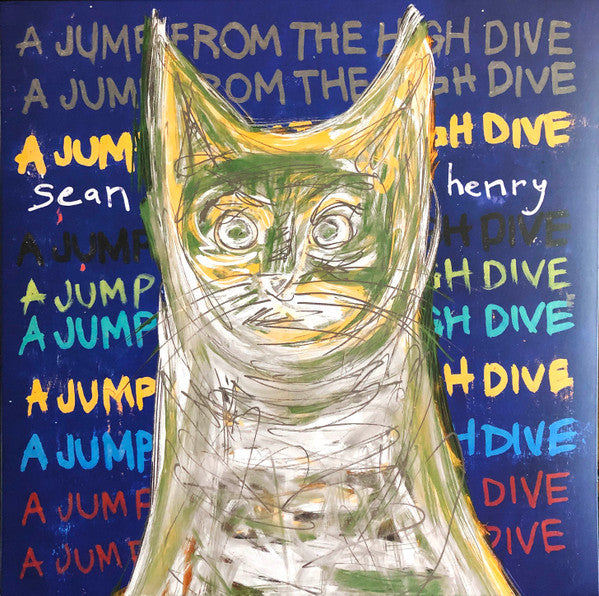 A JUMP FROM THE HIGH DIVE
A JUMP FROM THE HIGH DIVE
A JUM GH DIVE
sean henry
A JUMP H DIVE
A JUMP GH DIVE
A JUMP GH DIVE
A JUMP H DIVE
A JUMP H DIVE
A JUMP DIVE
A JUMP DIVE